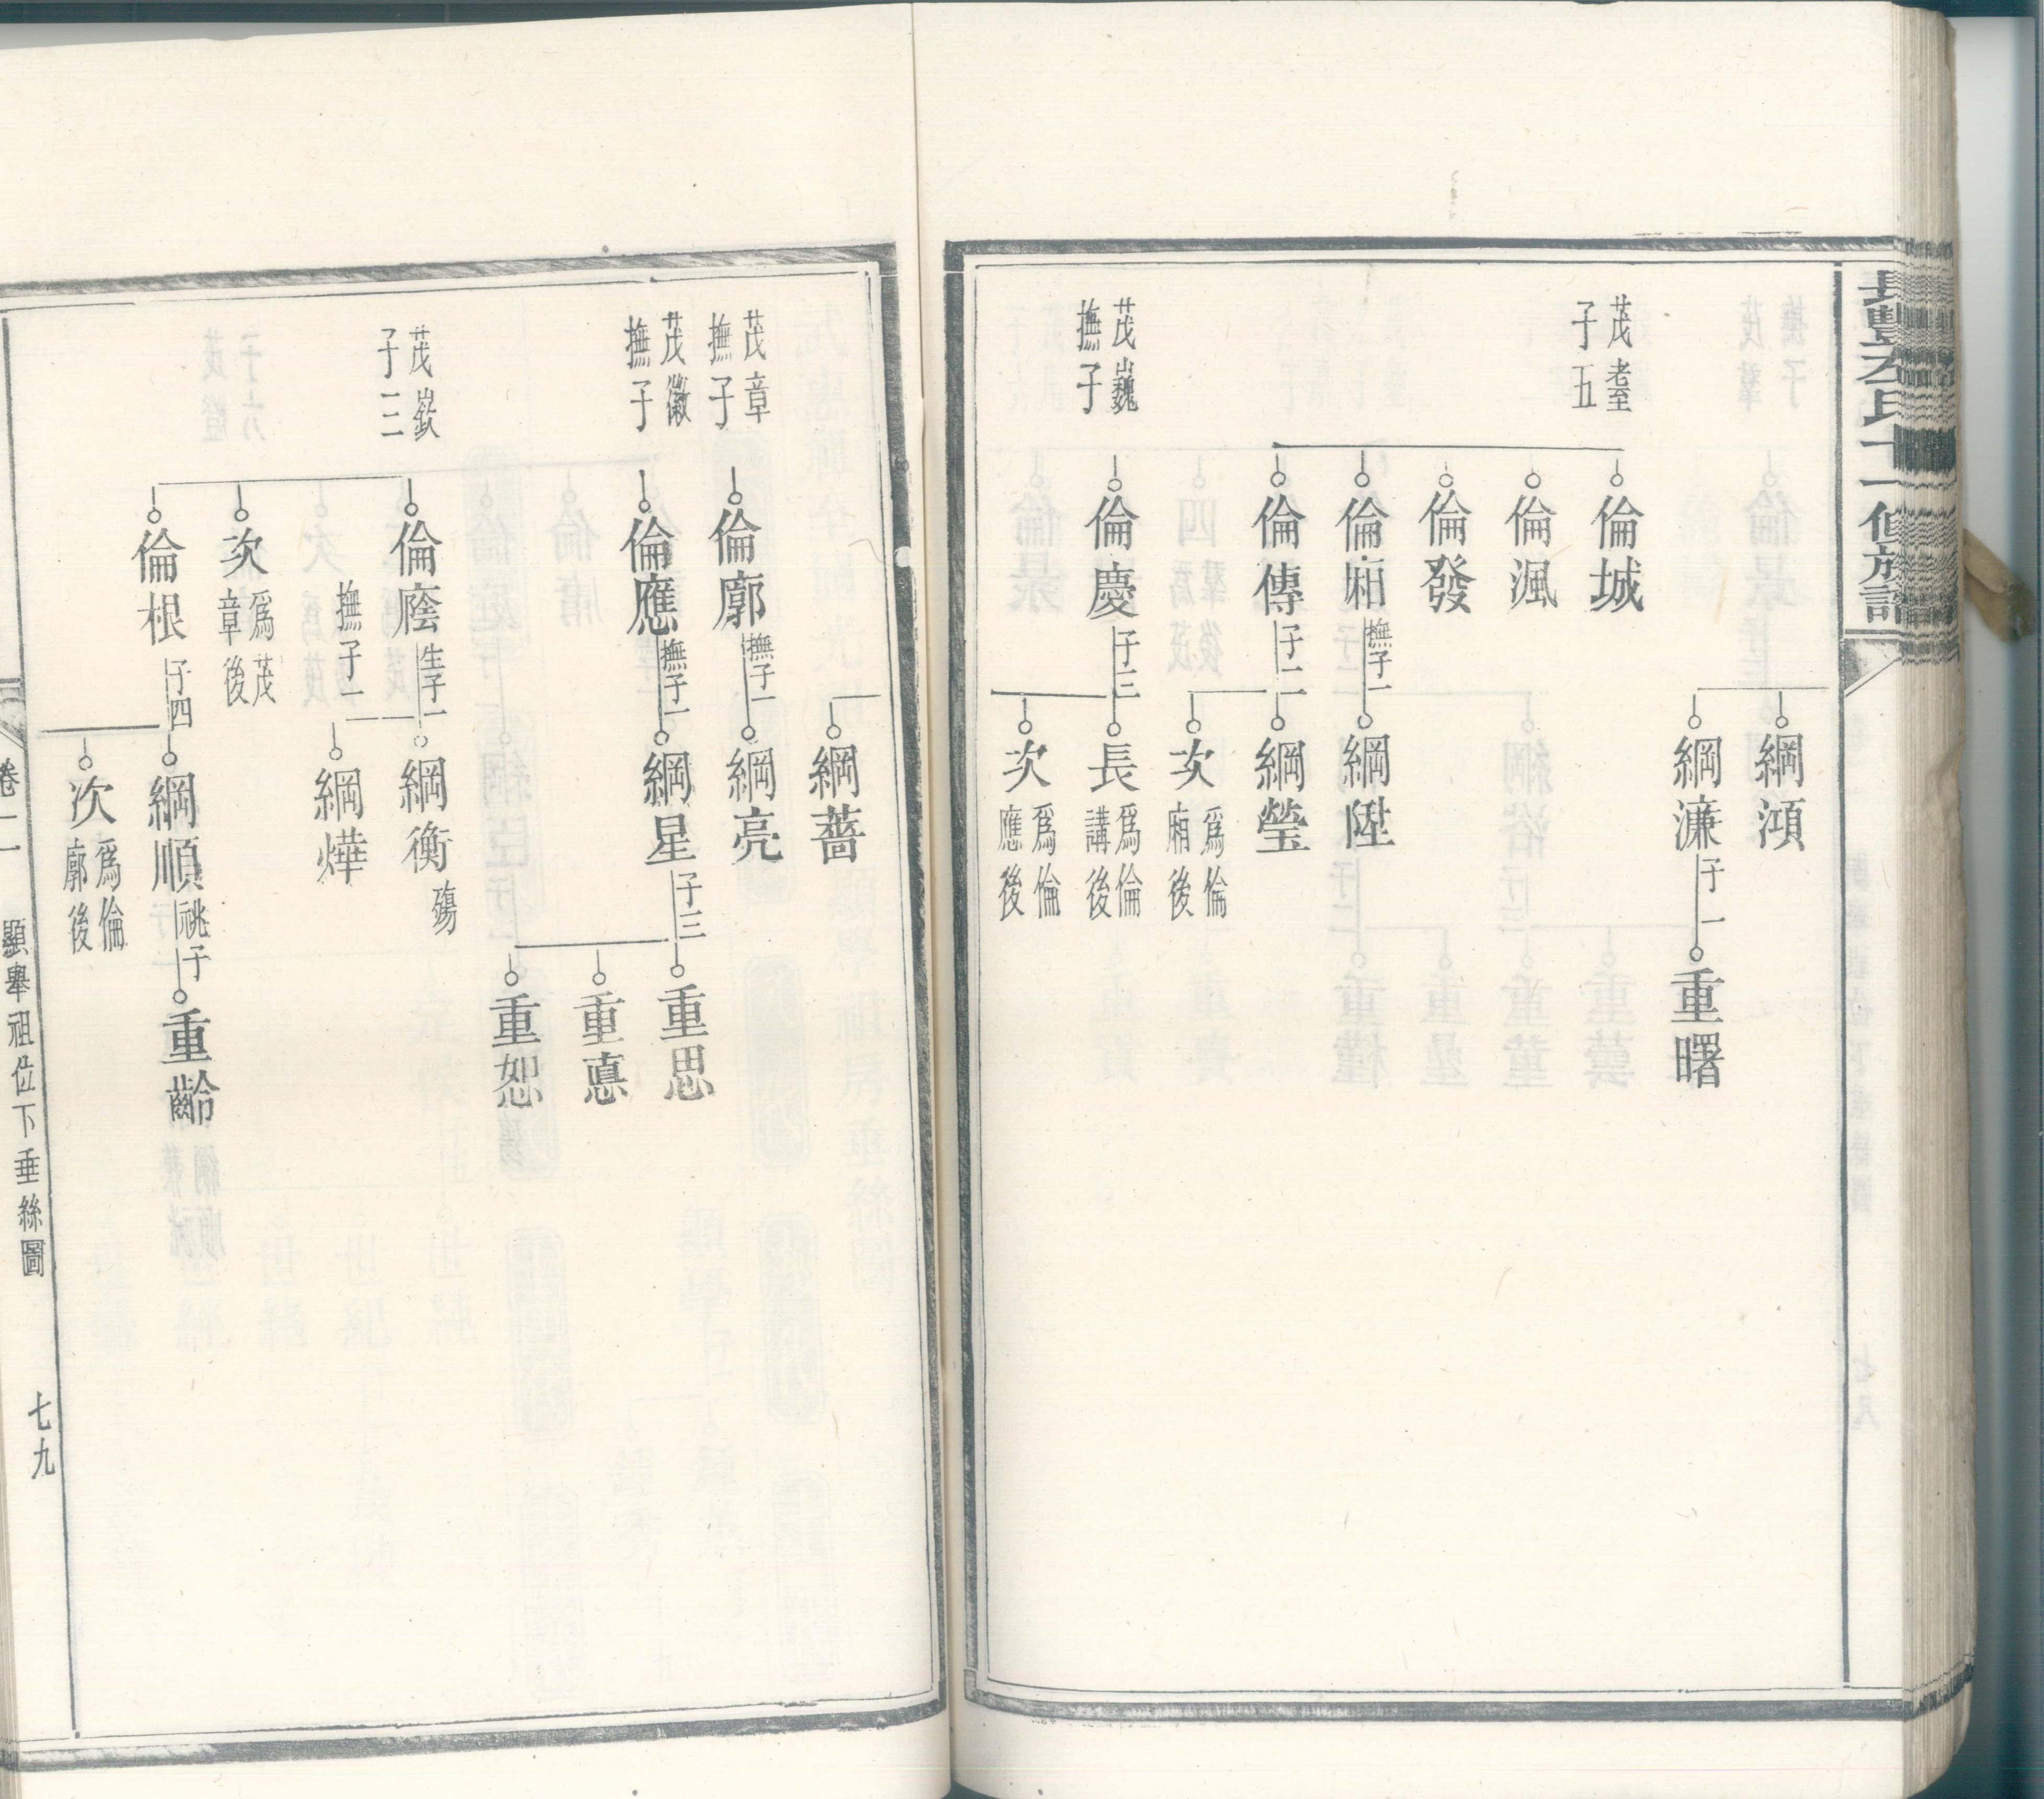 氏十一修族譜
綱澒
綱濂
子一
重曙
茂㙜
子五
倫城
倫渢
倫發
倫廂
撫子一
綱陞
倫傳
子二
綱瑩
次
爲倫
廂後
茂巍
撫子
倫慶
子三
長
爲倫
講後
次
爲倫
應後
綱薔
茂章
撫子
倫廓
撫子一
綱亮
茂徽
撫子
倫應
撫子一
綱星
子三
重思
重惪
重恕
茂嶔
子三
倫廕
生子一
撫子一
綱衡
殤
綱燁
次
爲茂
章後
倫根
子四
綱順
祧子
重齡
次
爲倫
廓後
顯舉祖位下垂絲圖
七九